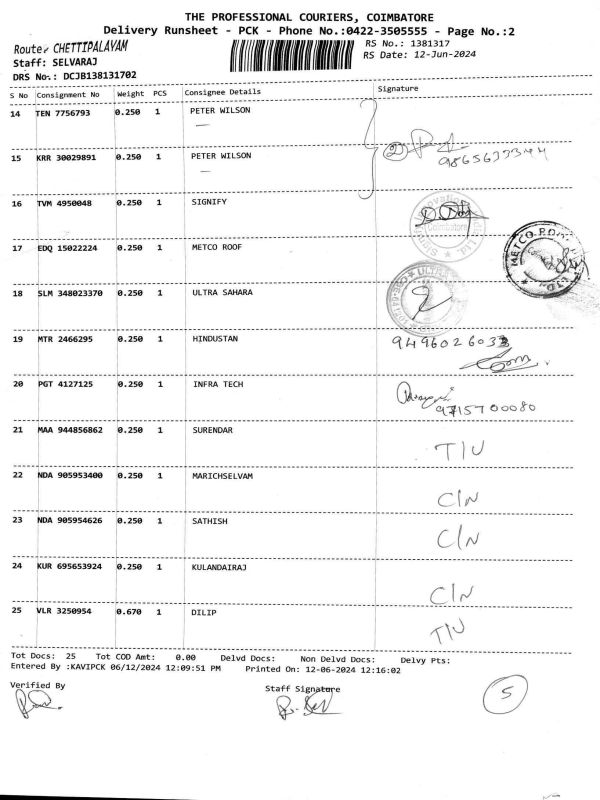 THE PROFESSIONAL COURIERS, COIMBATORE
Delivery Runsheet - PCK - Phone No.:0422-3505555 - Page No.:2
Route: CHETTIPALAYAM
RS No.: 1381317
Staff: SELVARAJ
RS Date: 12-Jun-2024
DRS No.: DCJB138131702
S No Consignment No Weight PCS Consignee Details Signature
14 TEN 7756793 0.250 1 PETER WILSON
15 KRR 30029891 0.250 1 PETER WILSON
2
16 TVM 4950048 0.250 1 SIGNIFY
Coimbatore
17 EDQ 15022224 0.250 1 METCO ROOF
METCO ROOF
18 SLM 348023370 0.250 1 ULTRA SAHARA
ULTRA
19 MTR 2466295 0.250 1 HINDUSTAN 9496026033
20 PGT 4127125 0.250 1 INFRA TECH
9715700080
21 MAA 944856862 0.250 1 SURENDAR T/U
22 NDA 905953400 0.250 1 MARICHSELVAM C/N
23 NDA 905954626 0.250 1 SATHISH C/N
24 KUR 695653924 0.250 1 KULANDAIRAJ C/N
25 VLR 3250954 0.670 1 DILIP T/U
Tot Docs: 25 Tot COD Amt: 0.00 Delvd Docs: Non Delvd Docs: Delvy Pts:
Entered By :KAVIPCK 06/12/2024 12:09:51 PM Printed On: 12-06-2024 12:16:02
Verified By Staff Signature
5